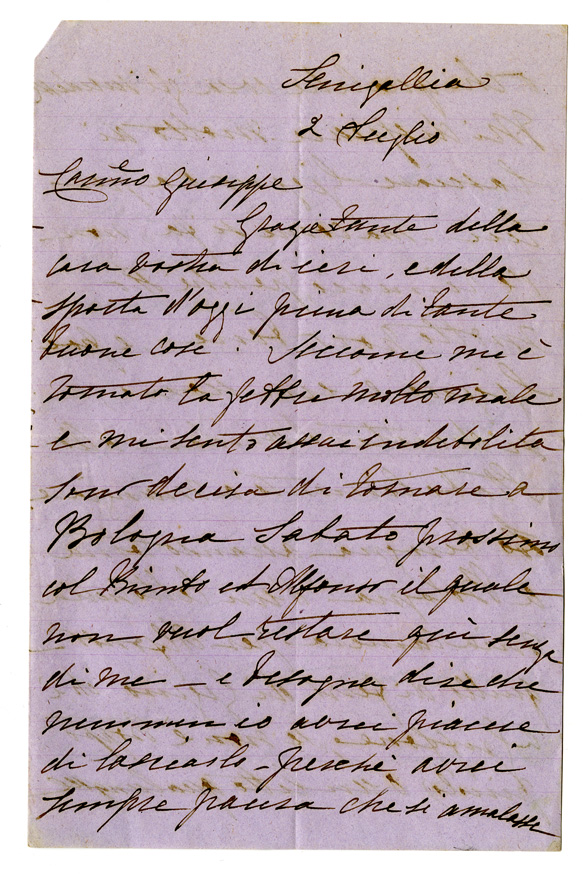 Senigallia
2 Luglio
Carimo Giuseppe
Grazie tante della
cara vostra di ieri, e della
sporta d'oggi piena di tante
buone cose. Siccome me è
tornata la febbre molto male
e mi sento assai indebolita
sono decisa di tornare a
Bologna Sabato prossimo
col ed Alfonso il quale
non vuol restare quì senza
di me – e bisogna dire che
nemmen io avrei piacere
di lasciarlo – perchè avrei
sempre paura che si amalasse